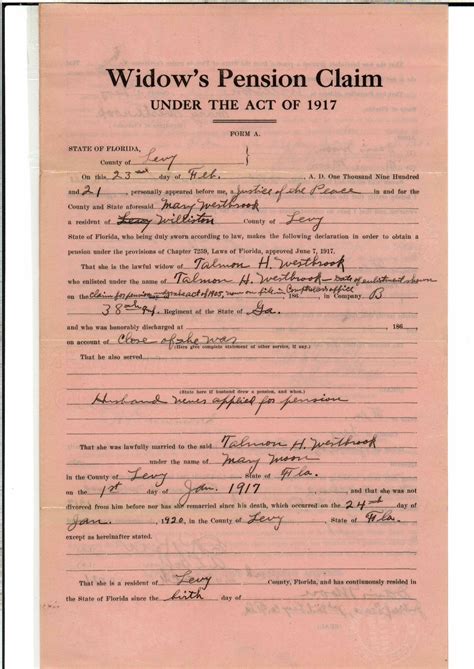 Widow's Pension Claim
UNDER THE ACT OF 1917
FORM A.
STATE OF FLORIDA,
County of Levy
On this 23rd day of Feb. A. D. One Thousand Nine Hundred
and 21, personally appeared before me, a Justice of the Peace in and for the
County and State aforesaid Mary Westbrook
a resident of Levy Williston County of Levy
State of Florida, who being duly sworn according to law, makes the following declaration in order to obtain a
pension under the provisions of Chapter 7259, Laws of Florida, approved June 7, 1917.
That she is the lawful widow of Talmon H. Westbrook
who enlisted under the name of Talmon H. Westbrook - Date of enlistment shown
on the claim for pension under act of 1905, now on file in Comptroller's office 186 in Company B
38th Regiment of the State of Ga.
and who was honorably discharged at 186
on account of Close of the war
(Here give complete statement of other service, if any.)
That he also served
(State here if husband drew a pension, and when.)
Husband never applied for pension
That she was lawfully married to the said Talmon H. Westbrook
under the name of Mary Moon
in the County of Levy State of Fla.
on the 1st day of Jan. 1917 and that she was not
divorced from him before nor has she remarried since his death, which occurred on the 24th day of
Jan. , 1920, in the County of Levy State of Fla.
except as hereinafter stated.
That she is a resident of Levy County, Florida, and has continuously resided in
the State of Florida since the birth day of